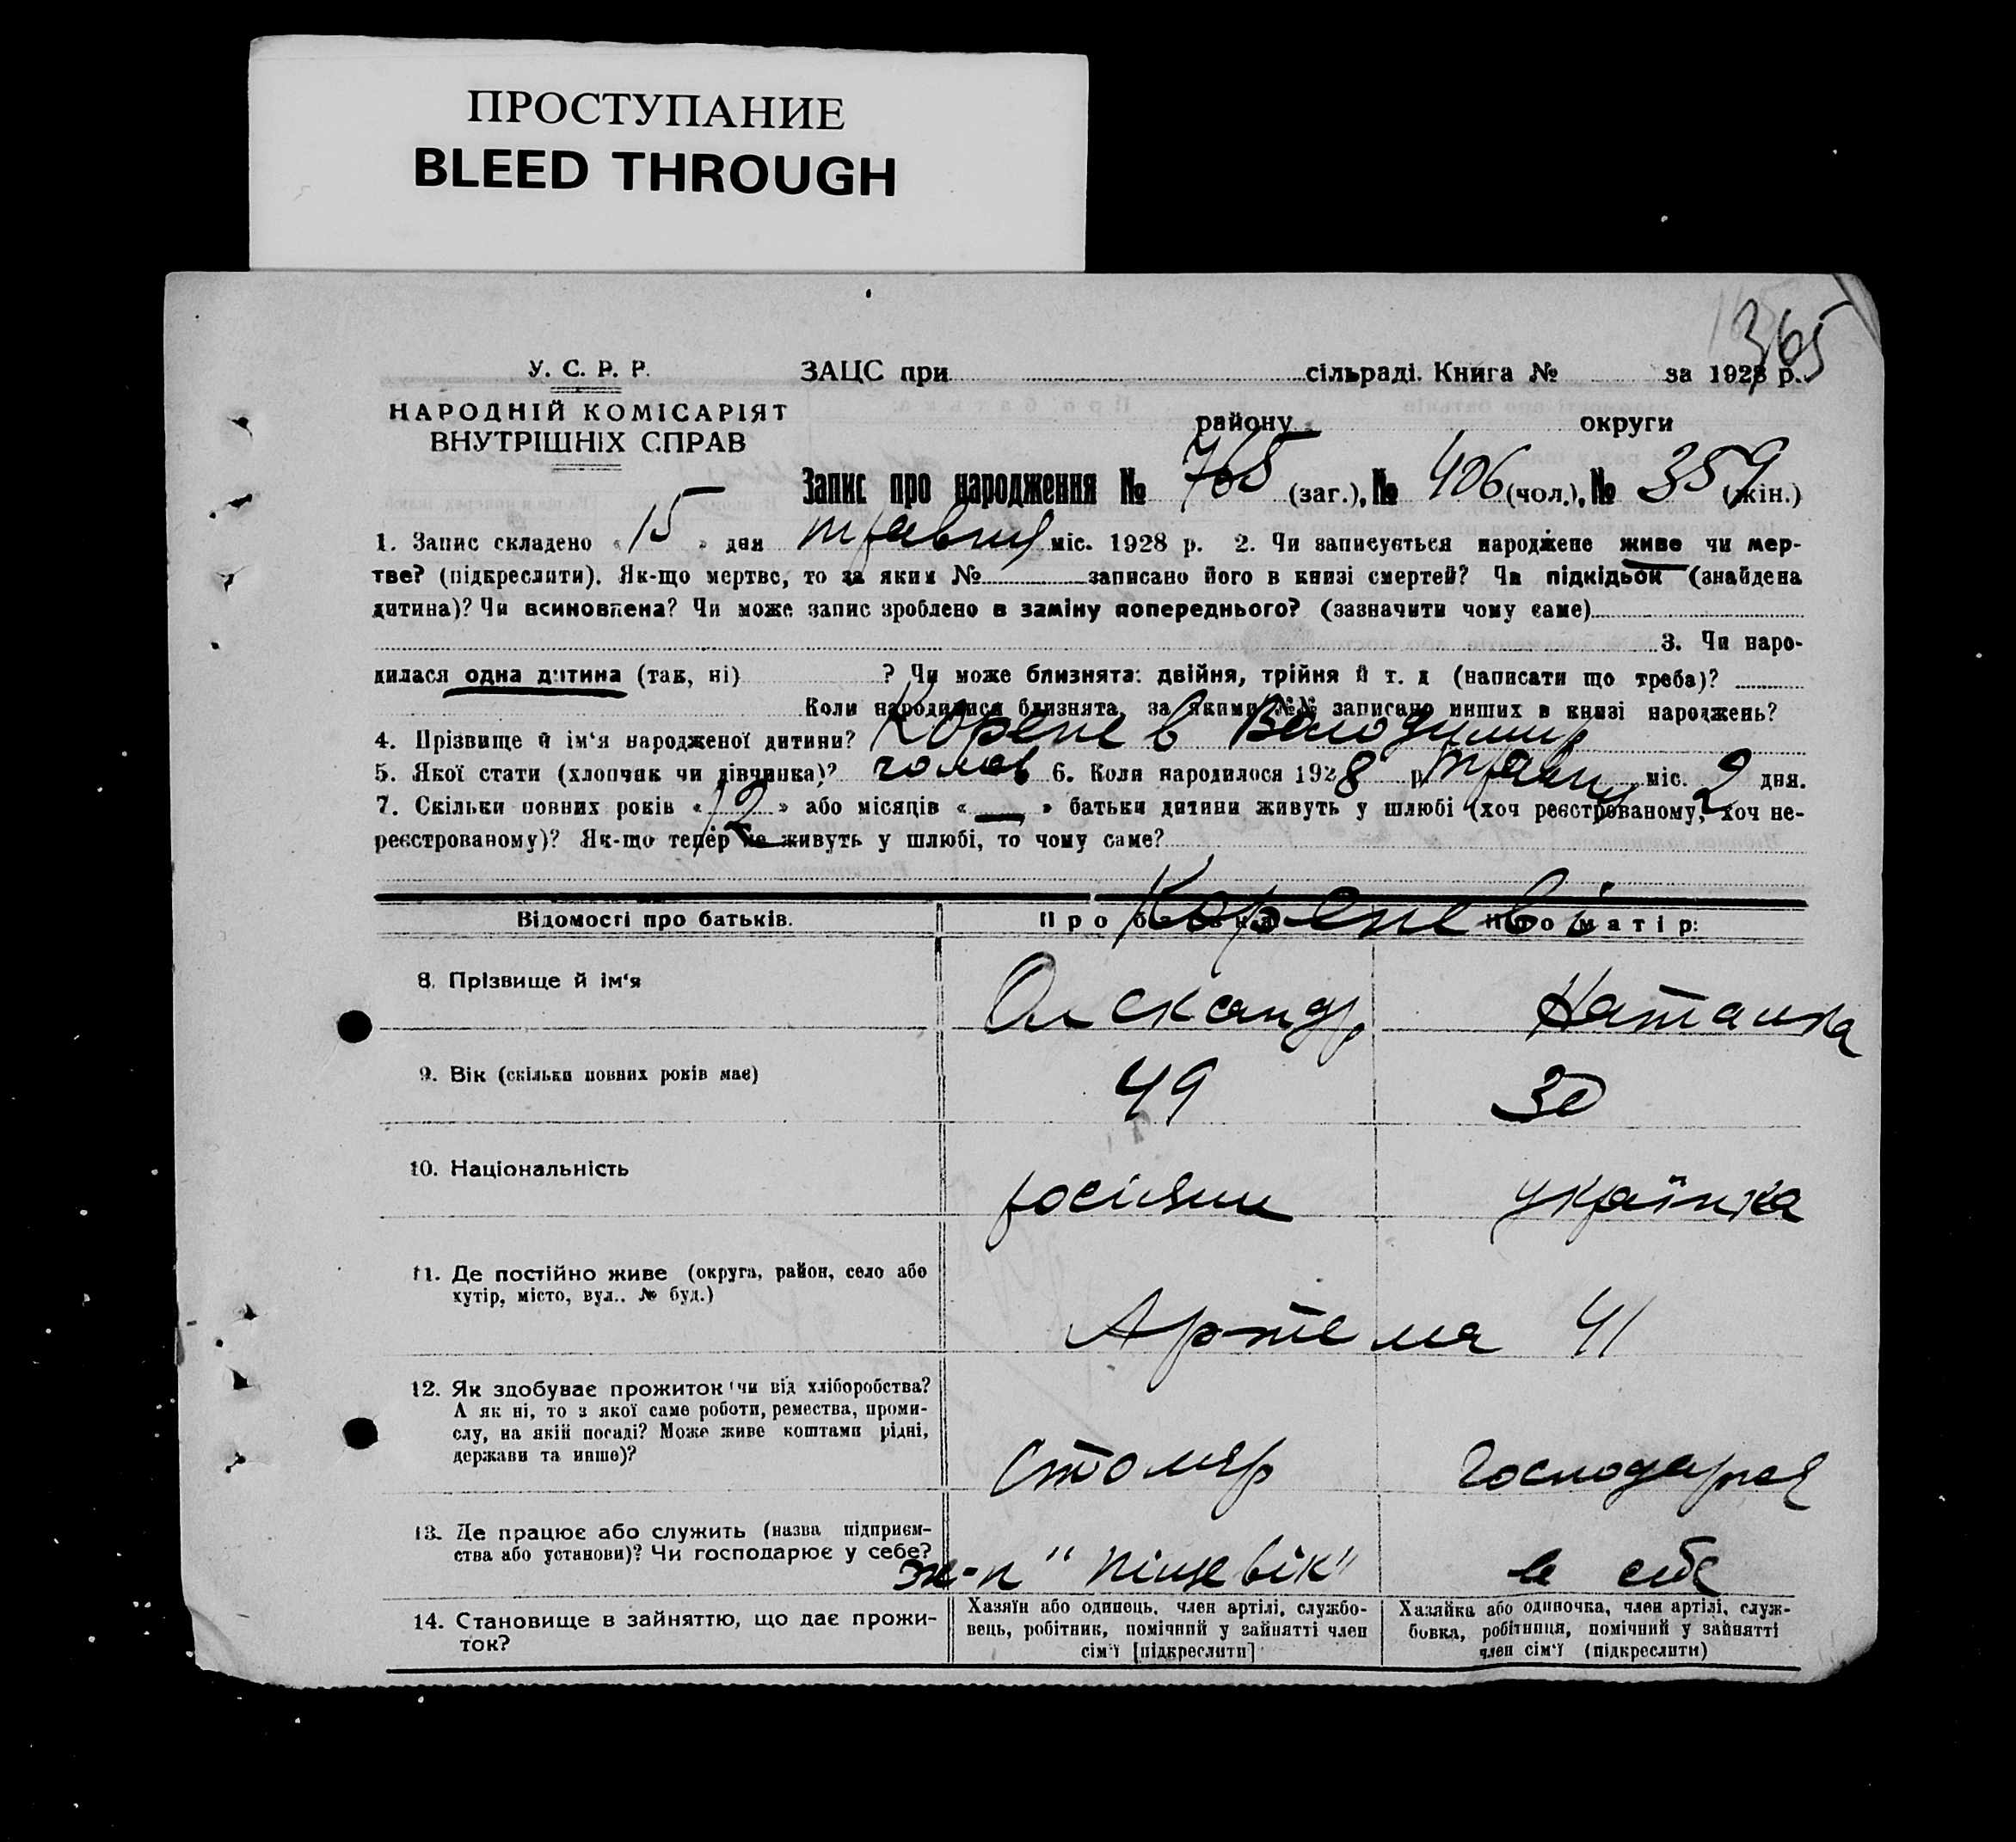 ПРОСТУПАНИЕ
BLEED THROUGH
365
У. С. Р. Р.
НАРОДНІЙ КОМІСАРІЯТ
ВНУТРІШНІХ СПРАВ
ЗАЦС при сільраді. Книга № за 1928 р.
району округи
Запис про народження № 765 (заг.), № 406 (чол.), № 359 (жін.)
1. Запис складено « 15 » дня травня міс. 1928 р. 2. Чи записується народжене живе чи мер-
тве? (підкреслити). Як-що мертве, то за яким № записано його в книзі смертей? Чи підкідьок (знайдена
дитина)? Чи всиновлена? Чи може запис зроблено в заміну попереднього? (зазначити чому саме)
3. Чи наро-
дилася одна дитина (так, ні) ? Чи може близнята: двійня, трійня й т. д (написати що треба)?
Коли народилися близнята, за якими №№ записано инших в книзі народжень?
4. Прізвище й ім'я народженої дитини? Коренев Володимир
5. Якої стати (хлопчик чи дівчинка)? чолов 6. Коли народилося 1928 р травня міс. 2 дня.
7. Скільки повних років « 12 » або місяців « — » батьки дитини живуть у шлюбі (хоч реєстрованому, хоч не-
реєстрованому)? Як-що тепер не живуть у шлюбі, то чому саме?
Відомості про батьків. Про батька: Про матір:
Кореневі
8. Прізвище й ім'я Олександр Наталка
9. Вік (скільки повних років має) 49 30
10. Національність росіянин українка
11. Де постійно живе (округа, район, село або
хутір, місто, вул.. № буд.)
Артема 41
12. Як здобуває прожиток чи від хліборобства?
А як ні, то з якої саме роботи, ремества, проми-
слу, на якій посаді? Може живе коштами рідні,
держави та инше)?
Столяр Господарка
13. Де працює або служить (назва підприєм-
ства або установи)? Чи господарює у себе?
"Піщевік" в себе
14. Становище в зайняттю, що дає прожи-
ток?
Хазяїн або одинець, член артілі, службо-
вець, робітник, помічний у зайнятті член
сім'ї [підкреслити]
Хазяйка або одиночка, член артілі, служ-
бовка, робітниця, помічний у зайнятті
член сім'ї (підкреслити)